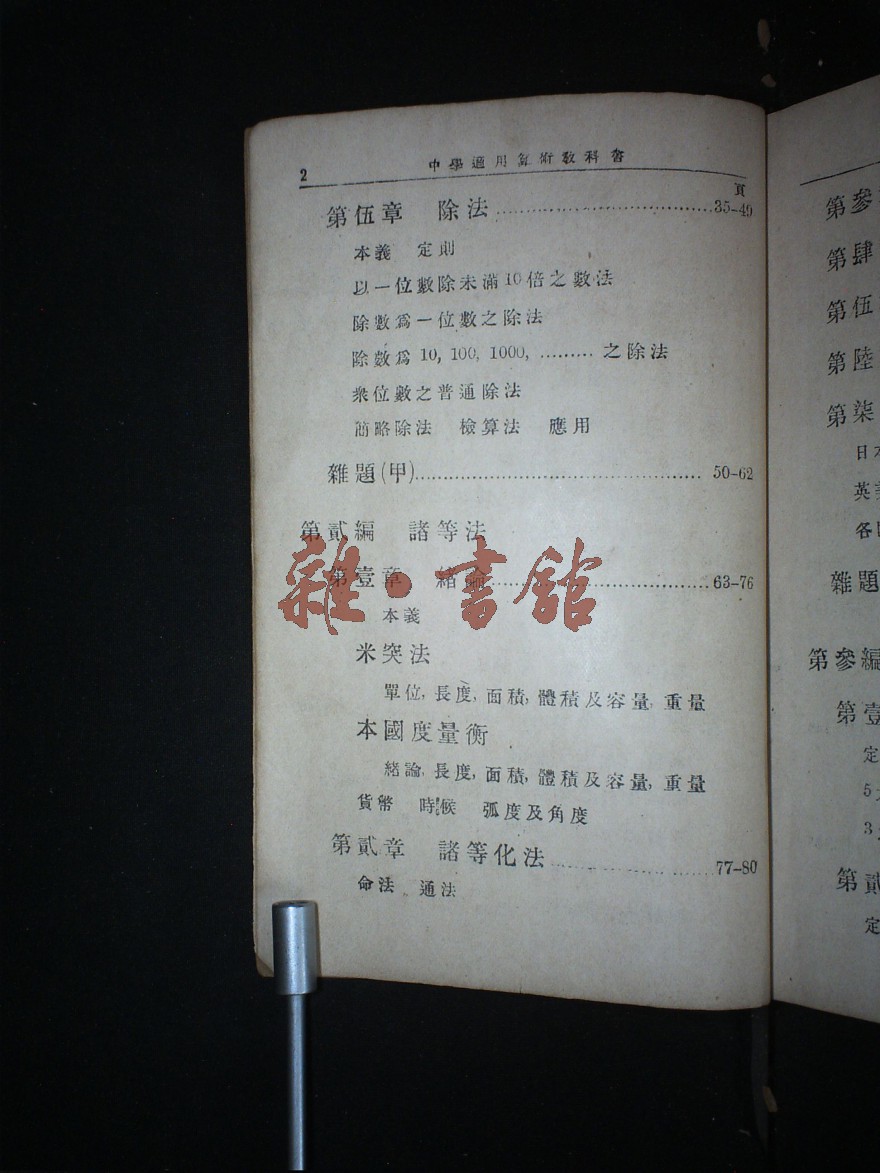 2 中學適用算術敎科書
頁
第伍章 除法 35-49
本義 定則
以一位數除未滿10倍之數法
除數爲一位數之除法
除數爲 10, 100, 1000, ……… 之除法
衆位數之普通除法
簡略除法 檢算法 應用
雜題(甲) 50-62
第貳編 諸等法
第壹章 緒論 63-76
本義
米突法
單位, 長度, 面積, 體積及容量, 重量
本國度量衡
緒論, 長度, 面積, 體積及容量, 重量
貨幣 時候 弧度及角度
第貳章 諸等化法 77-80
命法 通法
雜·書館
第參
第肆
第伍
第陸
第柒
日本
英美
各
雜題
第參編
第壹
定
5
3
第貳
定